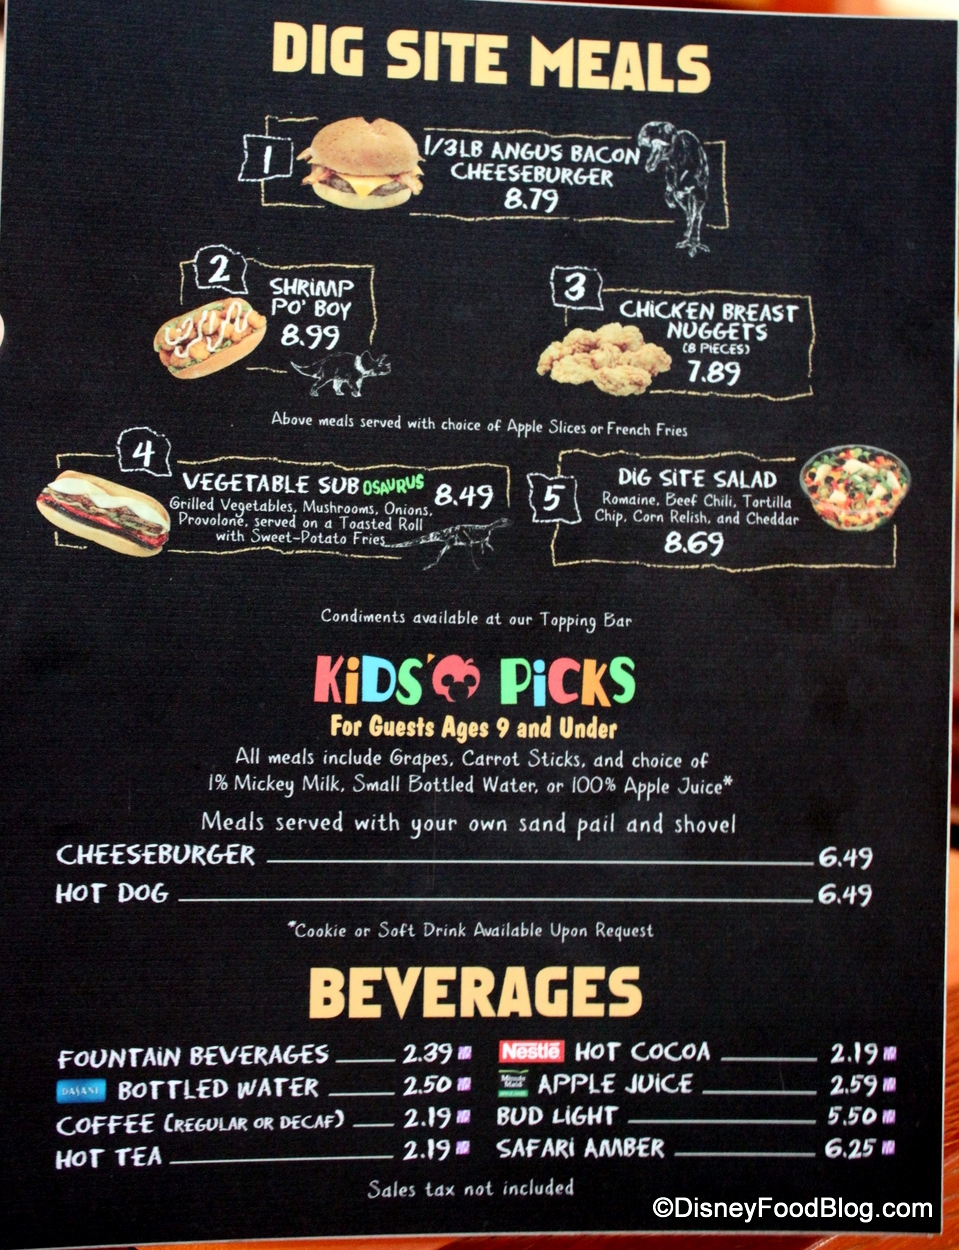 DIG SITE MEALS
1
1/3LB ANGUS BACON
CHEESEBURGER
8.79
2
SHRIMP
PO' BOY
8.99
3
CHICKEN BREAST
NUGGETS
(8 PIECES)
7.89
Above meals served with choice of Apple Slices or French Fries
4
VEGETABLE SUB OSAURUS 8.49
Grilled Vegetables, Mushrooms, Onions,
Provolone, served on a Toasted Roll
with Sweet-Potato Fries
5
DIG SITE SALAD
Romaine, Beef Chili, Tortilla
Chip, Corn Relish, and Cheddar
8.69
Condiments available at our Topping Bar
KIDS' PICKS
For Guests Ages 9 and Under
All meals include Grapes, Carrot Sticks, and choice of
1% Mickey Milk, Small Bottled Water, or 100% Apple Juice*
Meals served with your own sand pail and shovel
CHEESEBURGER 6.49
HOT DOG 6.49
*Cookie or Soft Drink Available Upon Request
BEVERAGES
FOUNTAIN BEVERAGES 2.39
DASANI BOTTLED WATER 2.50
COFFEE (REGULAR OR DECAF) 2.19
HOT TEA 2.19
Nestlé HOT COCOA 2.19
Minute Maid APPLE JUICE 2.59
BUD LIGHT 5.50
SAFARI AMBER 6.25
Sales tax not included
©DisneyFoodBlog.com